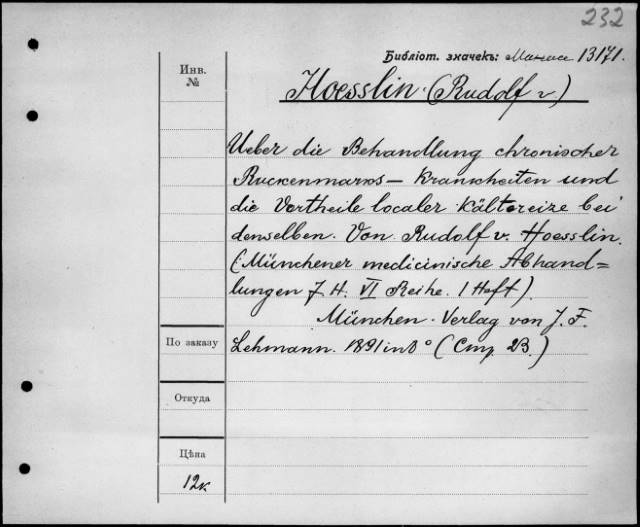 232
Библіот. значекъ: 13171.
Инв.
№
Hoesslin (Rudolf v.)
Ueber die Behandlung chronischer
Ruckenmarks- Krankheiten und
die Vortheile localer Kältereize bei
denselben. Von Rudolf v. Hoesslin.
(Münchener medicinische Abhand=
lungen 7 H. VI Reihe. 1 Heft).
München. Verlag von J. F.
По заказу
Lehmann. 1891 in 8° (Стр. 23.)
Откуда
Цѣна
12к